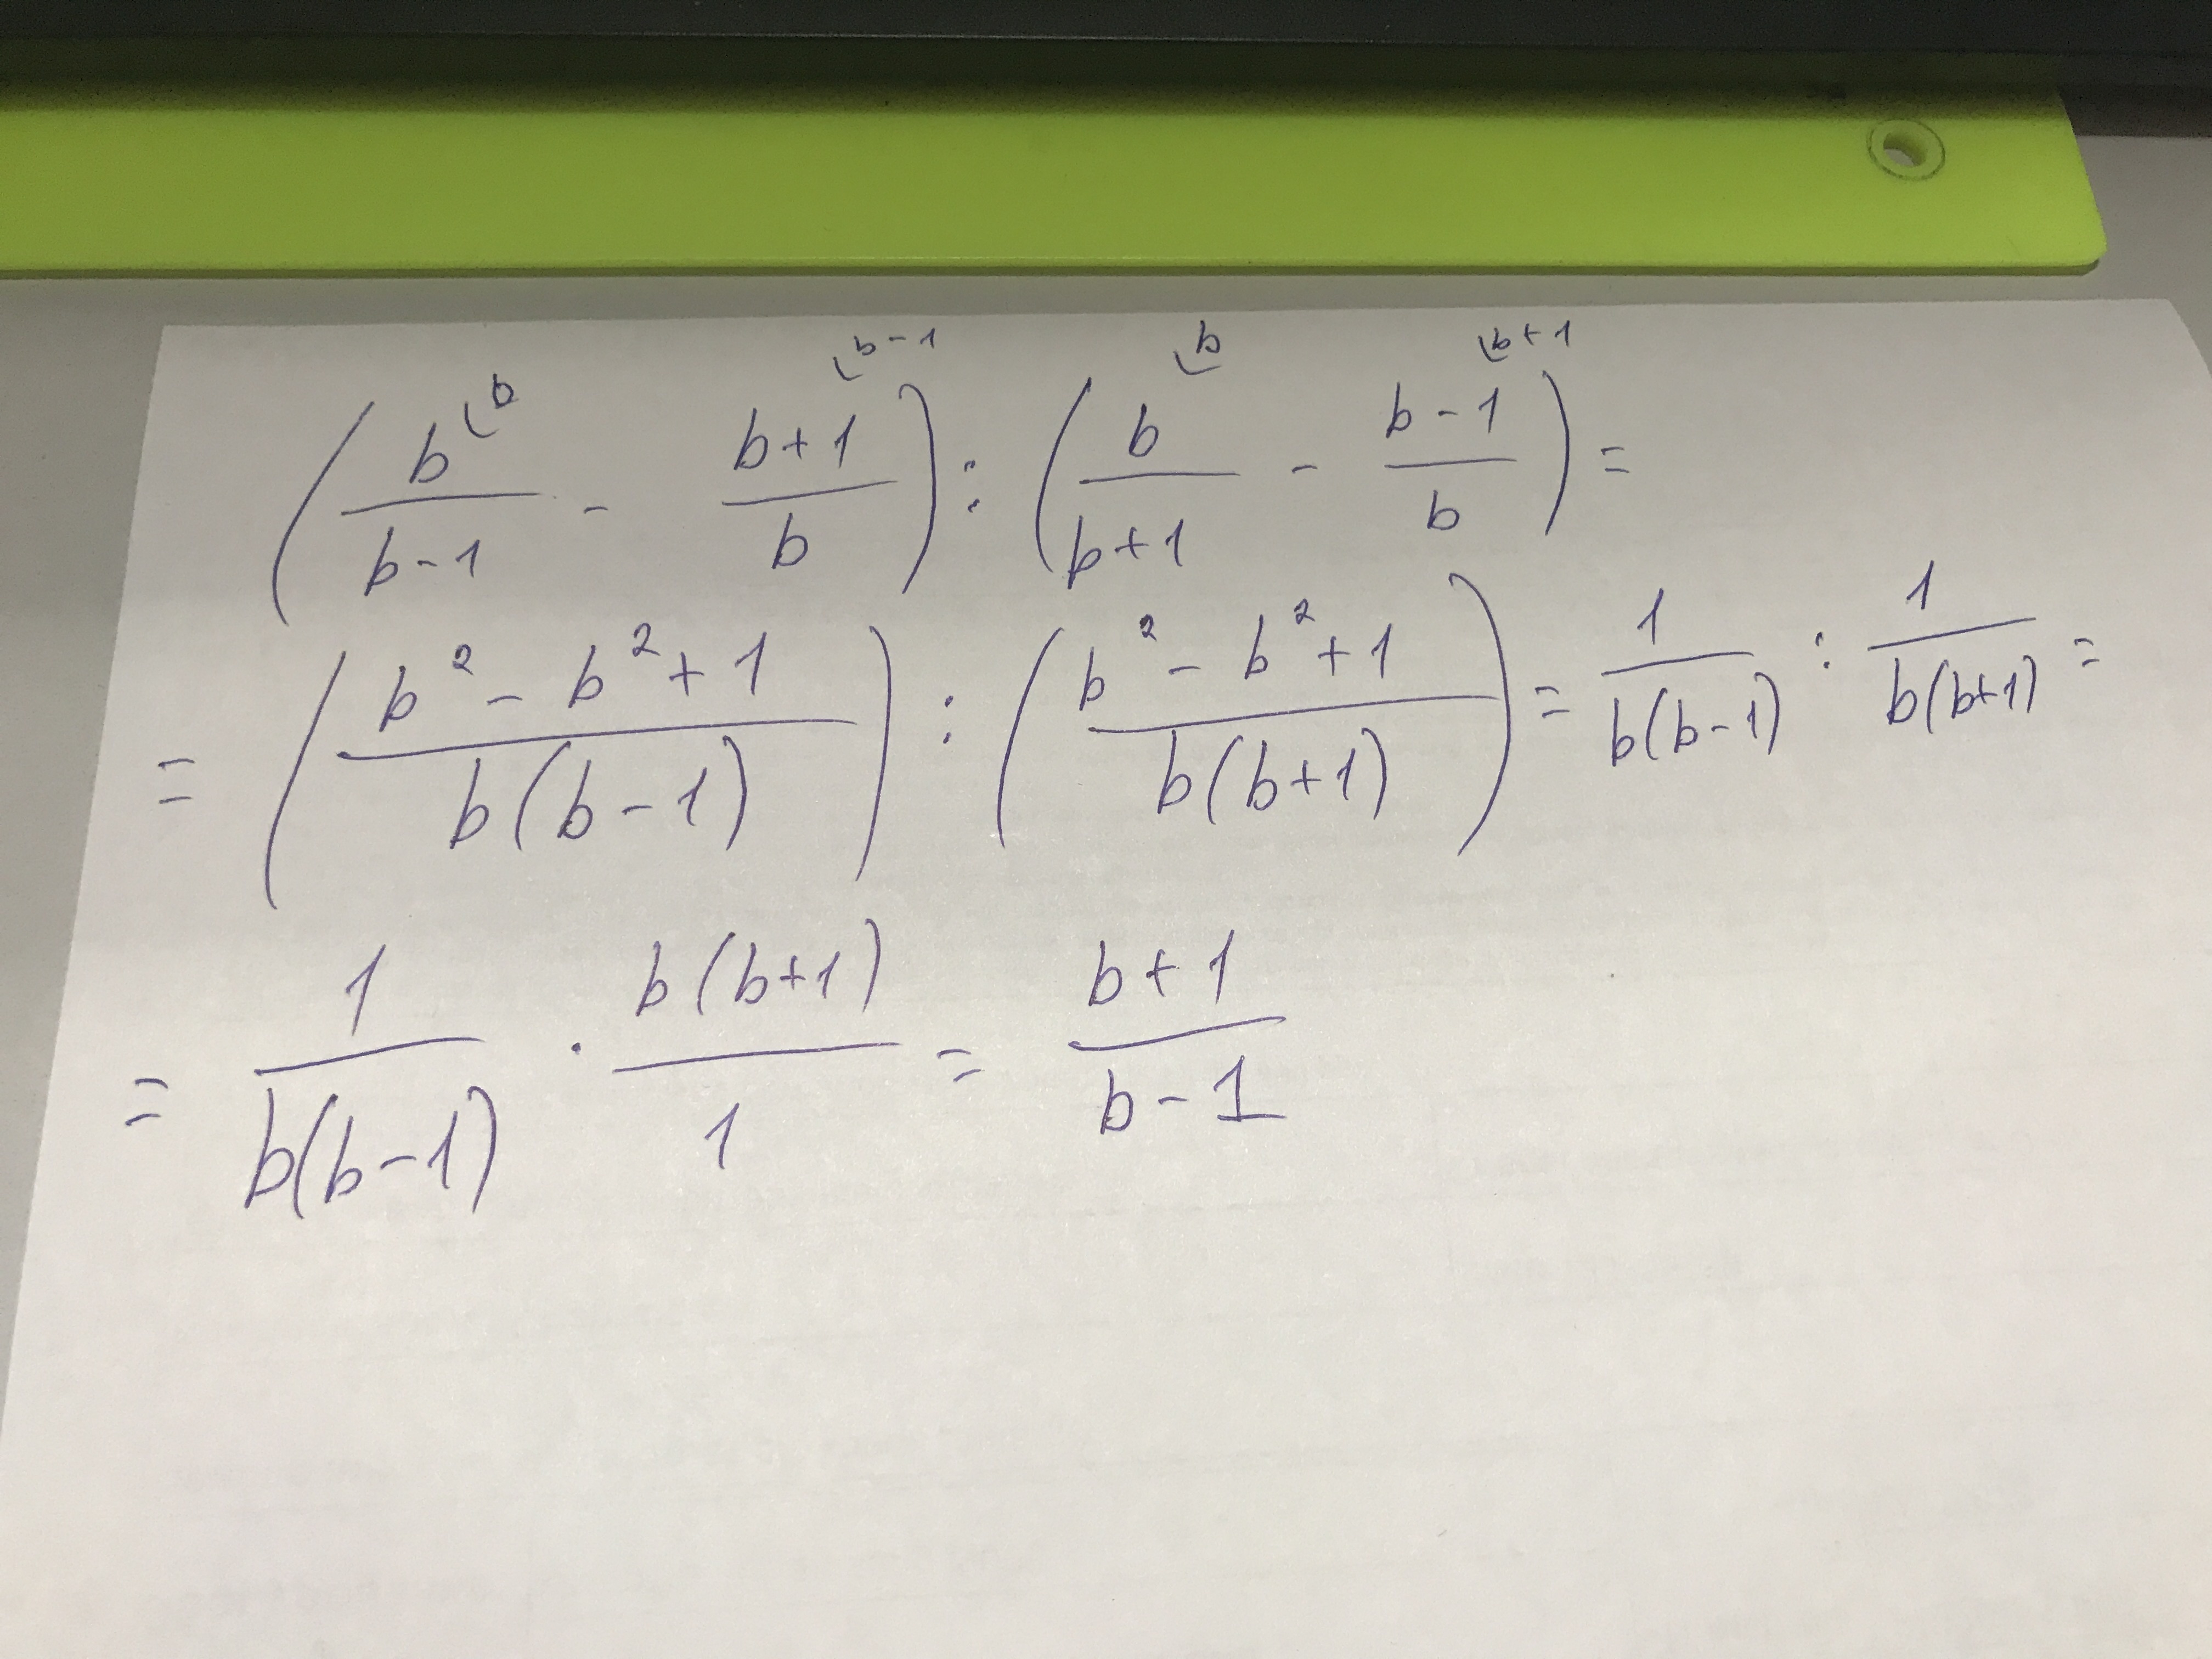 (b^{(b} / (b-1) - (b+1)^{(b-1} / b) : (b^{(b} / (b+1) - (b-1)^{(b+1} / b) =
= ((b² - b² + 1) / (b(b-1))) : ((b² - b² + 1) / (b(b+1))) = 1 / (b(b-1)) : 1 / (b(b+1)) =
= 1 / (b(b-1)) · (b(b+1)) / 1 = (b+1) / (b-1)